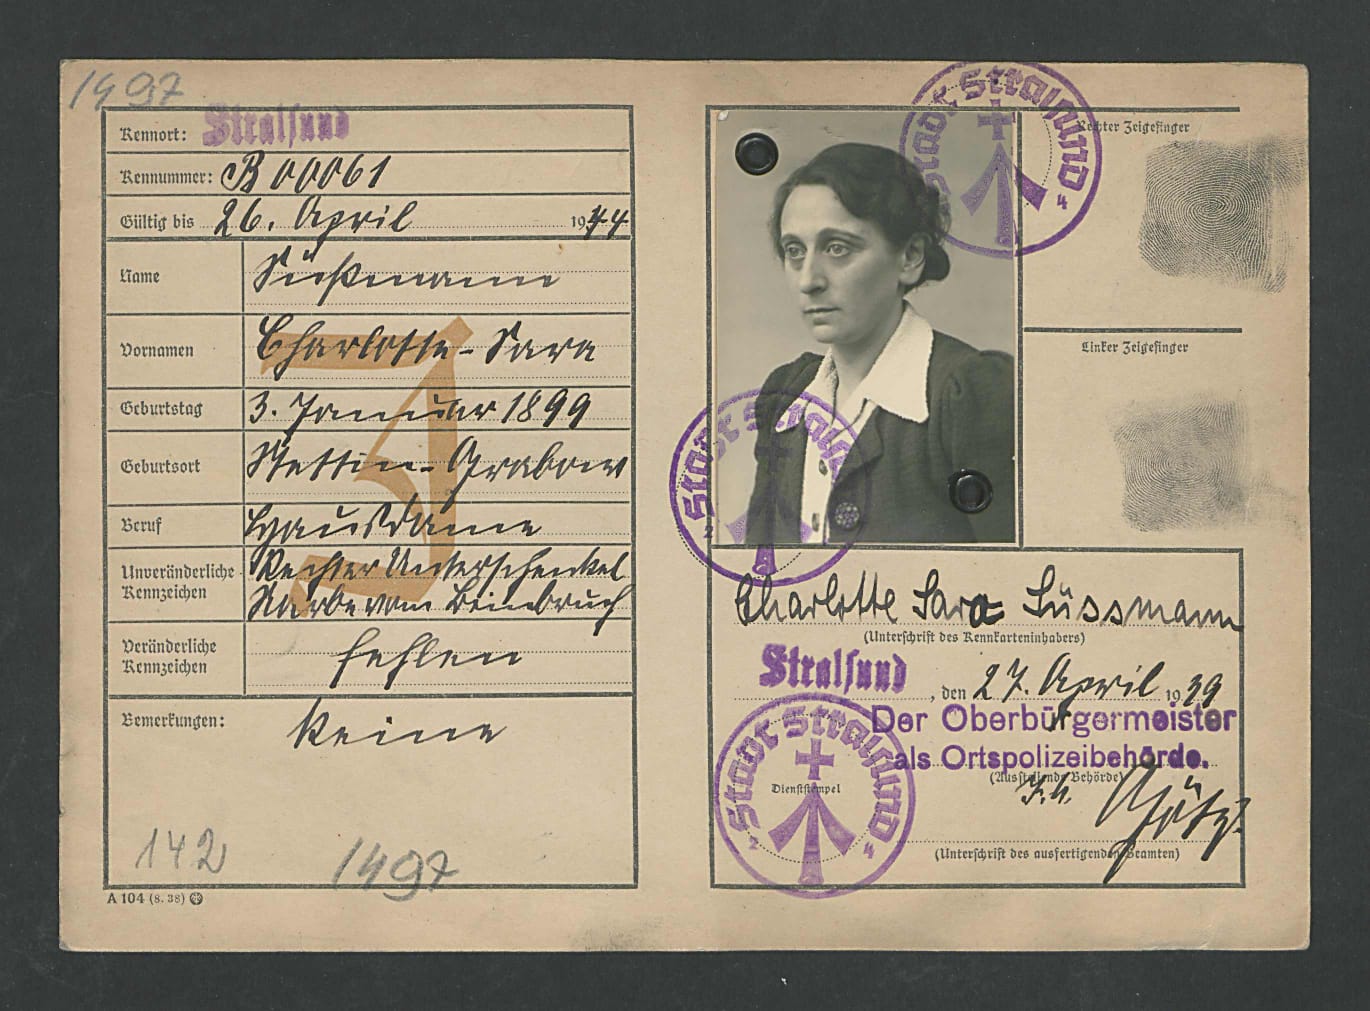 1497
Kennort: Stralsund
Kennummer: B 00061
Gültig bis 26. April 1944
Name Süßmann
Vornamen Charlotte-Sara
Geburtstag 3. Januar 1899
Geburtsort Stettin-Grabow
Beruf Hausdame
Unveränderliche Kennzeichen Rechter Unterschenkel
Narbe vom Beinbruch
Veränderliche Kennzeichen fehlen
Bemerkungen: Keine
J
142
1497
A 104 (8. 38)
Stadt Stralsund
4
Rechter Zeigefinger
Linker Zeigefinger
Stadt Stralsund
2
Charlotte Sara Süssmann
(Unterschrift des Kennkarteninhabers)
Stralsund, den 27. April 1939
Der Oberbürgermeister
als Ortspolizeibehörde.
(Ausstellende Behörde)
Stadt Stralsund
2 4
Dienststempel
(Unterschrift des ausfertigenden Beamten)